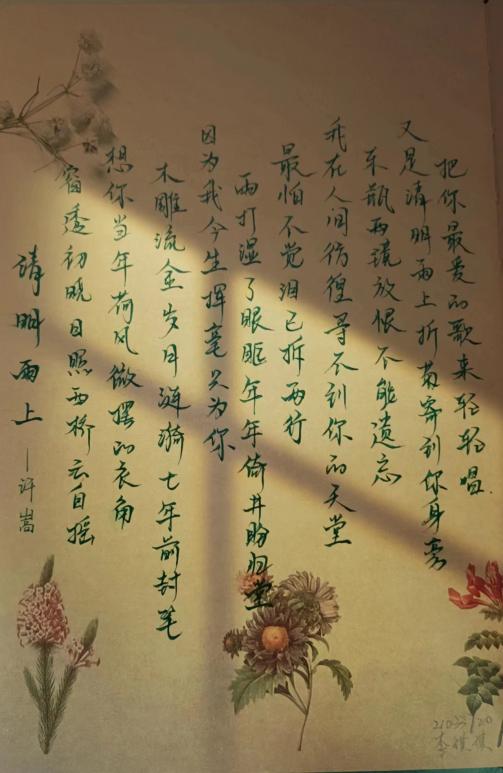 清明雨上
—许嵩
窗透初晓日照西桥云自摇
想你当年荷风微摆的衣角
木雕流金岁月涟漪七年前封笔
因为我今生挥毫只为你
雨打湿了眼眶年年倚井盼归堂
最怕不觉泪已拆两行
我在人间彷徨寻不到你的天堂
东瓶西镜放恨不能遗忘
又是清明雨上折菊寄到你身旁
把你最爱的歌来轻轻唱